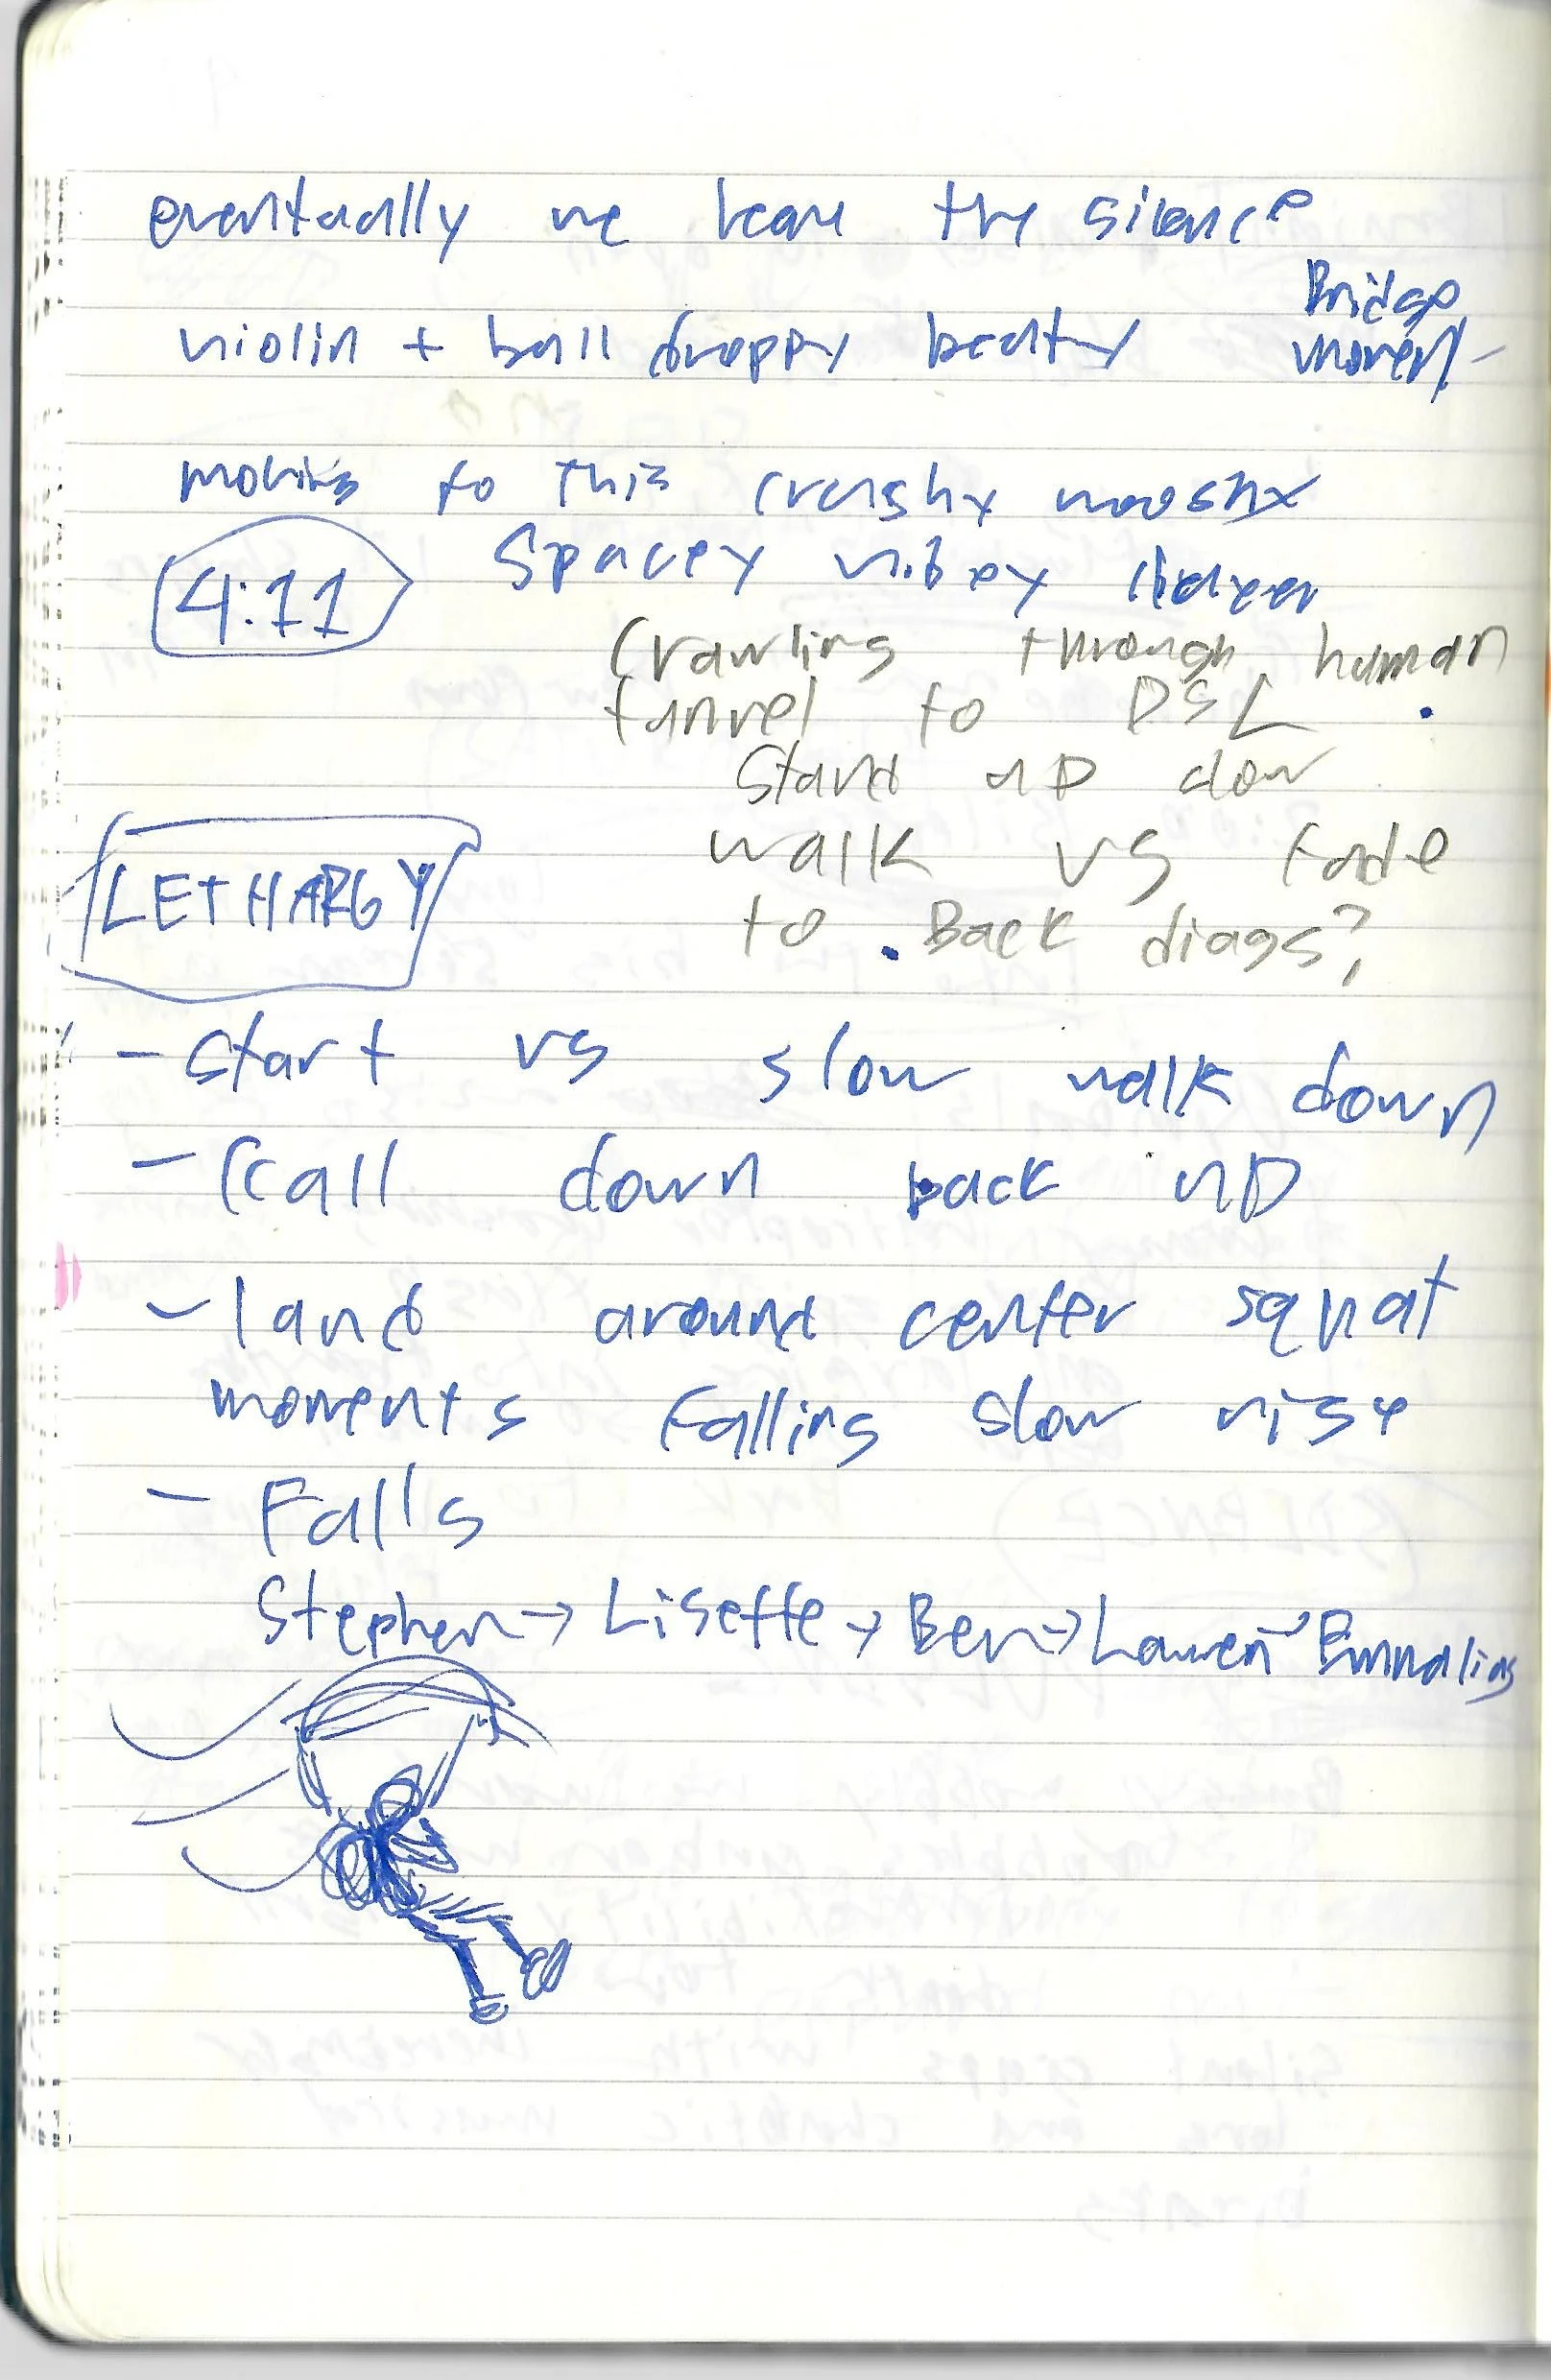 eventually we leave the silence
violin + ball droppy beaty
Bridge
moment
moving to this crashy wooshy
4:11
spacey vibey
crawling through human
tunnel to DSL
Stand up slow
walk vs fade
to Back diags?
LETHARGY
- start vs slow walk down
- call down back up
- land around center squat
moments falling slow rise
- Falls
Stephen → Lisette → Ben → Lauren →